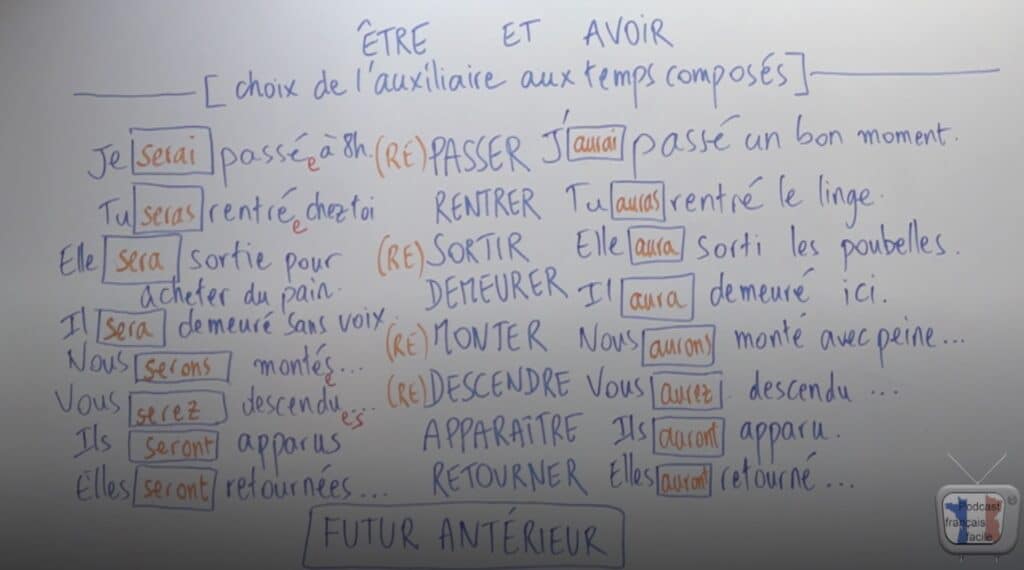 ÊTRE ET AVOIR
[choix de l'auxiliaire aux temps composés]
Je serai passée à 8h. (RE)PASSER J'aurai passé un bon moment.
Tu seras rentrée chez toi RENTRER Tu auras rentré le linge.
Elle sera sortie pour (RE)SORTIR Elle aura sorti les poubelles.
acheter du pain. DEMEURER Il aura demeuré ici.
Il sera demeuré sans voix. (RE)MONTER Nous aurons monté avec peine...
Nous serons montés e... (RE)DESCENDRE Vous aurez descendu ...
Vous serez descendu e s...
Ils seront apparus APPARAÎTRE Ils auront apparu.
Elles seront retournées... RETOURNER Elles auront retourné ...
FUTUR ANTÉRIEUR
Podcast
français
facile